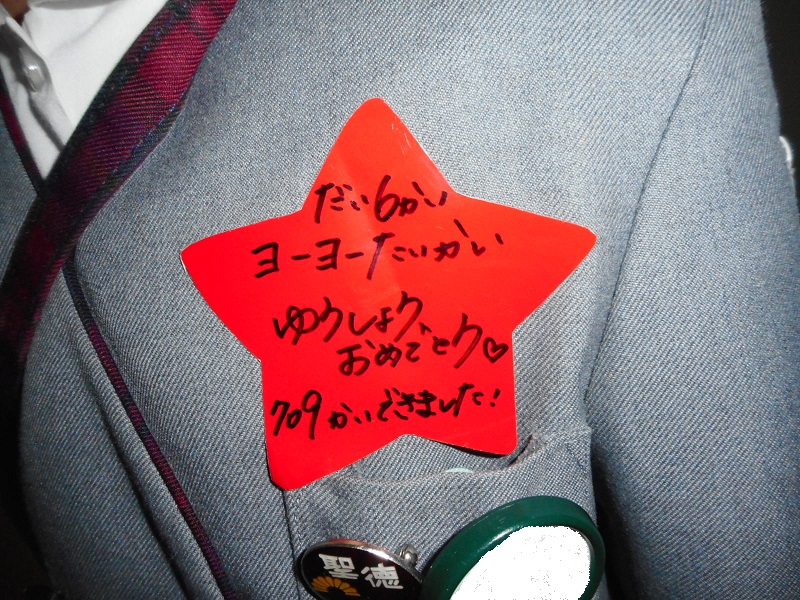 だい6かい
ヨーヨーたいかい
ゆうしょう、
おめでとう♡
709かいできました!
聖徳